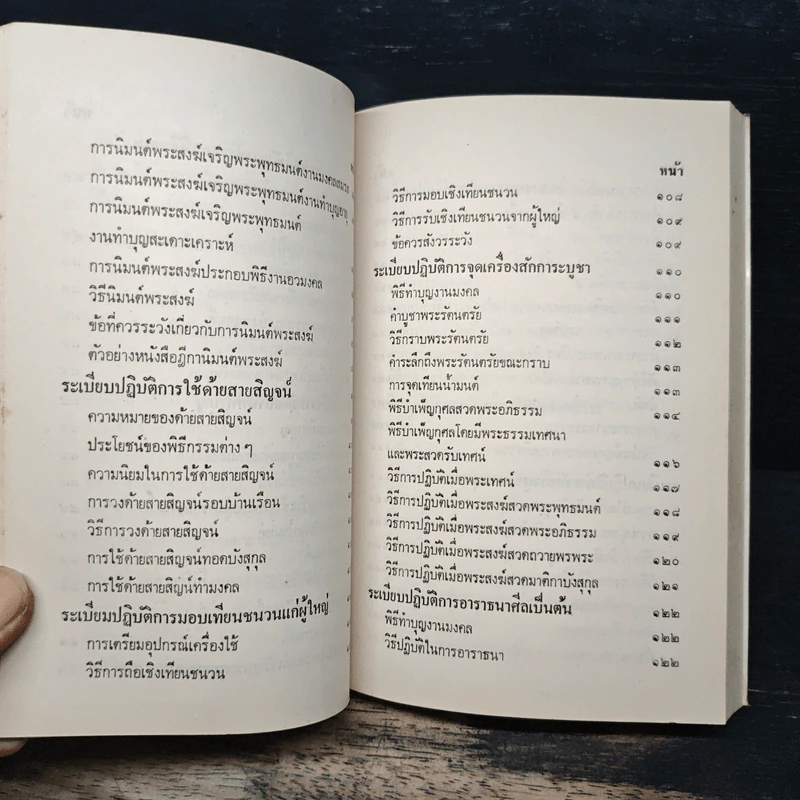 การนิมนต์พระสงฆ์เจริญพระพุทธมนต์งานมงคลสมรส
การนิมนต์พระสงฆ์เจริญพระพุทธมนต์งานทำบุญอายุ
การนิมนต์พระสงฆ์เจริญพระพุทธมนต์
งานทำบุญสะเดาะเคราะห์
การนิมนต์พระสงฆ์ประกอบพิธีงานอวมงคล
วิธีนิมนต์พระสงฆ์
ข้อที่ควรระวังเกี่ยวกับการนิมนต์พระสงฆ์
ตัวอย่างหนังสือฎีกานิมนต์พระสงฆ์
ระเบียบปฏิบัติการใช้ด้ายสายสิญจน์
ความหมายของด้ายสายสิญจน์
ประโยชน์ของพิธีกรรมต่าง ๆ
ความนิยมในการใช้ด้ายสายสิญจน์
การวงด้ายสายสิญจน์รอบบ้านเรือน
วิธีการวงด้ายสายสิญจน์
การใช้ด้ายสายสิญจน์ทอดบังสุกุล
การใช้ด้ายสายสิญน์ทำมงคล
ระเบียบปฏิบัติการมอบเทียนชนวนแก่ผู้ใหญ่
การเตรียมอุปกรณ์เครื่องใช้
วิธีการถือเชิงเทียนชนวน
หน้า
วิธีการมอบเชิงเทียนชนวน ๑๐๘
วิธีการรับเชิงเทียนชนวนจากผู้ใหญ่ ๑๐๙
ข้อควรสังวรระวัง ๑๐๙
ระเบียบปฏิบัติการจุดเครื่องสักการะบูชา ๑๑๐
พิธีทำบุญงานมงคล ๑๑๐
คำบูชาพระรัตนตรัย ๑๑๑
วิธีกราบพระรัตนตรัย ๑๑๒
คำระลึกถึงพระรัตนตรัยขณะกราบ ๑๑๓
การจุดเทียนน้ำมนต์ ๑๑๓
พิธีบำเพ็ญกุศลสวดพระอภิธรรม ๑๑๔
พิธีบำเพ็ญกุศลโดยมีพระธรรมเทศนา
และพระสวดรับเทศน์ ๑๑๖
วิธีการปฏิบัติเมื่อพระเทศน์ ๑๑๗
วิธีการปฏิบัติเมื่อพระสงฆ์สวดพระพุทธมนต์ ๑๑๘
วิธีการปฏิบัติเมื่อพระสงฆ์สวดพระอภิธรรม ๑๑๙
วิธีการปฏิบัติเมื่อพระสงฆ์สวดถวายพรพระ ๑๒๐
วิธีการปฏิบัติเมื่อพระสงฆ์สวดมาติกาบังสุกุล ๑๒๑
ระเบียบปฏิบัติการอาราธนาศีลเป็นต้น ๑๒๒
พิธีทำบุญงานมงคล ๑๒๒
วิธีปฏิบัติในการอาราธนา ๑๒๒